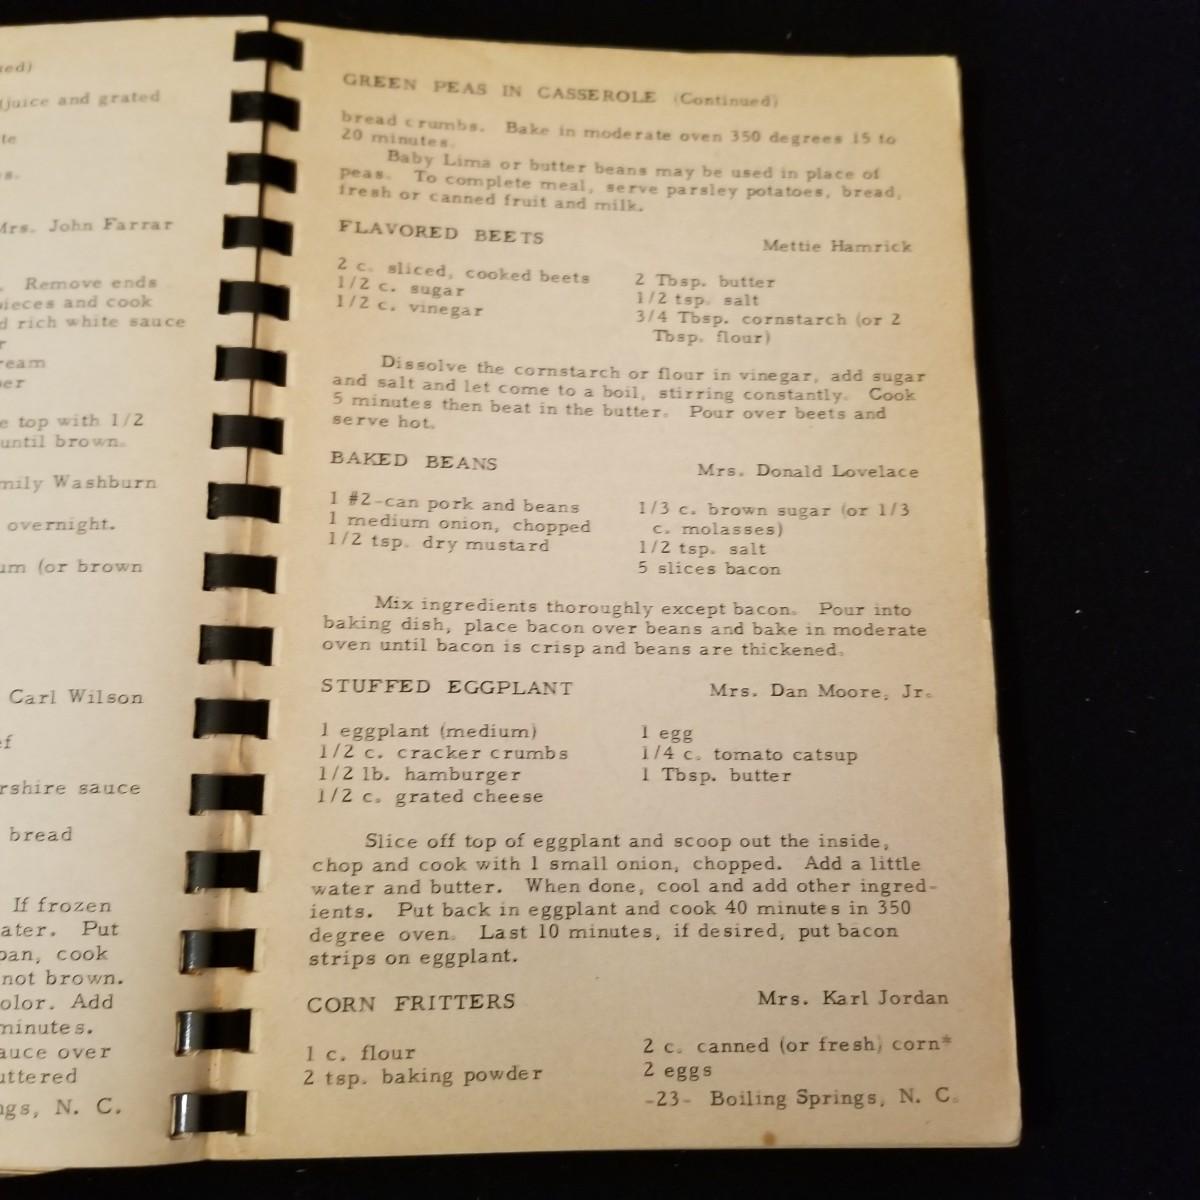 ued)
juice and grated
te
s.
Mrs. John Farrar
. Remove ends
pieces and cook
d rich white sauce
r
ream
per
e top with 1/2
until brown.
mily Washburn
overnight.
um (or brown
Carl Wilson
ef
rshire sauce
bread
If frozen
ater. Put
pan, cook
not brown.
olor. Add
minutes.
auce over
uttered
ngs, N. C.
GREEN PEAS IN CASSEROLE (Continued)
bread crumbs. Bake in moderate oven 350 degrees 15 to
20 minutes.
Baby Lima or butter beans may be used in place of
peas. To complete meal, serve parsley potatoes, bread,
fresh or canned fruit and milk.
FLAVORED BEETS Mettie Hamrick
2 c. sliced, cooked beets 2 Tbsp. butter
1/2 c. sugar 1/2 tsp. salt
1/2 c. vinegar 3/4 Tbsp. cornstarch (or 2
Tbsp. flour)
Dissolve the cornstarch or flour in vinegar, add sugar
and salt and let come to a boil, stirring constantly. Cook
5 minutes then beat in the butter. Pour over beets and
serve hot.
BAKED BEANS Mrs. Donald Lovelace
1 #2-can pork and beans 1/3 c. brown sugar (or 1/3
1 medium onion, chopped c. molasses)
1/2 tsp. dry mustard 1/2 tsp. salt
5 slices bacon
Mix ingredients thoroughly except bacon. Pour into
baking dish, place bacon over beans and bake in moderate
oven until bacon is crisp and beans are thickened.
STUFFED EGGPLANT Mrs. Dan Moore, Jr.
1 eggplant (medium) 1 egg
1/2 c. cracker crumbs 1/4 c. tomato catsup
1/2 lb. hamburger 1 Tbsp. butter
1/2 c. grated cheese
Slice off top of eggplant and scoop out the inside,
chop and cook with 1 small onion, chopped. Add a little
water and butter. When done, cool and add other ingred-
ients. Put back in eggplant and cook 40 minutes in 350
degree oven. Last 10 minutes, if desired, put bacon
strips on eggplant.
CORN FRITTERS Mrs. Karl Jordan
1 c. flour 2 c. canned (or fresh) corn*
2 tsp. baking powder 2 eggs
-23- Boiling Springs, N. C.